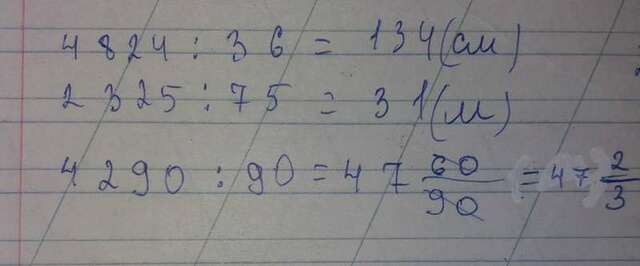 4824 : 36 = 134(см)
2325 : 75 = 31(м)
4290 : 90 = 47 60/90 = 47 2/3